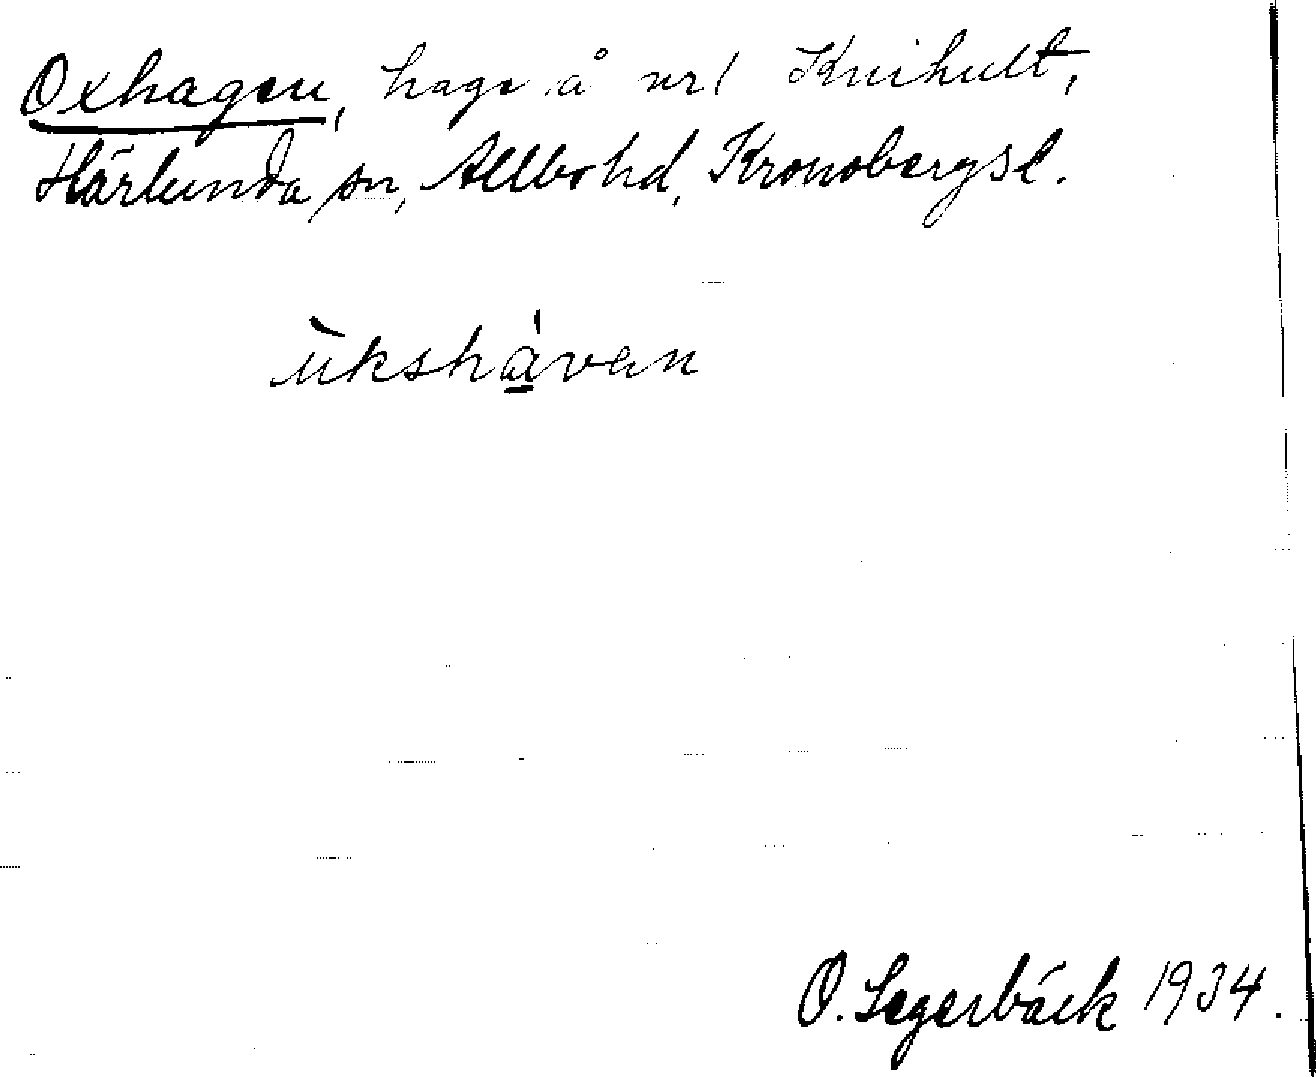 Oxhagen, hage å nr 1 Knihult,
Härlunda sn, Allbohd, Kronobergsl.
ùkshá̱ven
O. Segerbäck 1934.